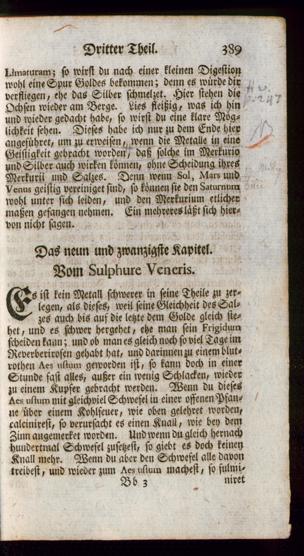 Dritter Theil. 389
Limaturam; so wirst du nach einer kleinen Digestion
wohl eine Spur Goldes bekommen; denn es würde dir
verfliegen, ehe das Silber schmelzet. Hier stehen die
Ochsen wieder am Berge. Lies fleißig, was ich hin
und wieder gedacht habe, so wirst du eine klare Mög-
lichkeit sehen. Dieses habe ich nur zu dem Ende hier
angeführet, um zu erweisen, wenn die Metalle in eine
Geistigkeit gebracht worden, daß solche im Merkurio
und Silber auch wirken können, ohne Scheidung ihres
Merkurii und Salzes. Denn wenn Sol, Mars und
Venus geistig vereiniget sind, so können sie den Saturnum
wohl unter sich leiden, und den Merkurium etlicher
maßen gefangen nehmen. Ein mehreres läßt sich hier-
von nicht sagen.
Das neun und zwanzigste Kapitel.
Vom Sulphure Veneris.
Es ist kein Metall schwerer in seine Theile zu zer-
legen, als dieses, weil seine Gleichheit des Sal-
zes auch bis auf die letzte dem Golde gleich ste-
het, und es schwer hergehet, ehe man sein Frigidum
scheiden kann; und ob man es gleich noch so viel Tage im
Reverberirofen gehabt hat, und darinnen zu einem blut-
rothen Aes ustum geworden ist, so kann doch in einer
Stunde fast alles, außer ein wenig Schlacken, wieder
zu einem Kupfer gebracht werden. Wenn du dieses
Aes ustum mit gleichviel Schwefel in einer offenen Pfan-
ne über einem Kohlfeuer, wie oben gelehret worden,
calcinirest, so verursacht es einen Knall, wie bey dem
Zinn angemerket worden. Und wenn du gleich hernach
hundertmal Schwefel zusetzest, so giebt es doch keinen
Knall mehr. Wenn du aber den Schwefel alle davon
treibest, und wieder zum Aes ustum machest, so fulmi-
Bb 3 niret